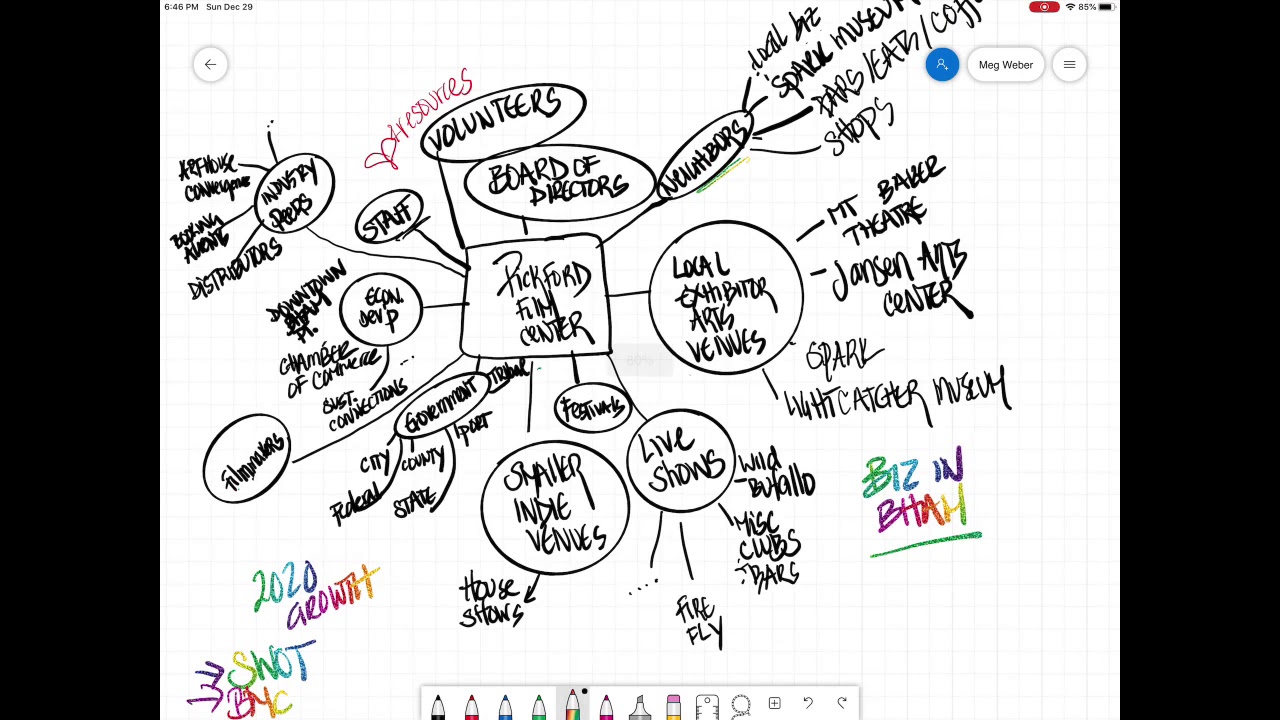 6:46 PM Sun Dec 29
85%
Meg Weber
LOCAL BIZ
SPARK MUSEUM
BARS/EATS/COFF
SHOPS
resources
VOLUNTEERS
BOARD OF
DIRECTORS
NEIGHBORS
ARTHOUSE
Convergence
BOOKING
AGENTS
DISTRIBUTORS
INDUSTRY
PEEPS
STAFF
MT BAKER
THEATRE
JANSEN ARTS
CENTER
SPARK
LIGHTCATCHER MUSEUM
LOCAL
EXHIBITOR
ARTS
VENUES
PICKFORD
FILM
CENTER
60%
ECON.
DEV'P
DOWNTOWN
BHAM
PT.
CHAMBER
OF COMMERCE
SUST.
CONNECTIONS
...
Filmmakers
Government
TRIBAL
PORT
CITY
COUNTY
Federal
STATE
FESTIVALS
SMALLER
INDIE
VENUES
HOUSE
SHOWS
LIVE
SHOWS
WILD
BUFFALLO
MISC
CLUBS
BARS
....
FIRE
FLY
BIZ IN
BHAM
2020
GROWTH
SWOT
BMC